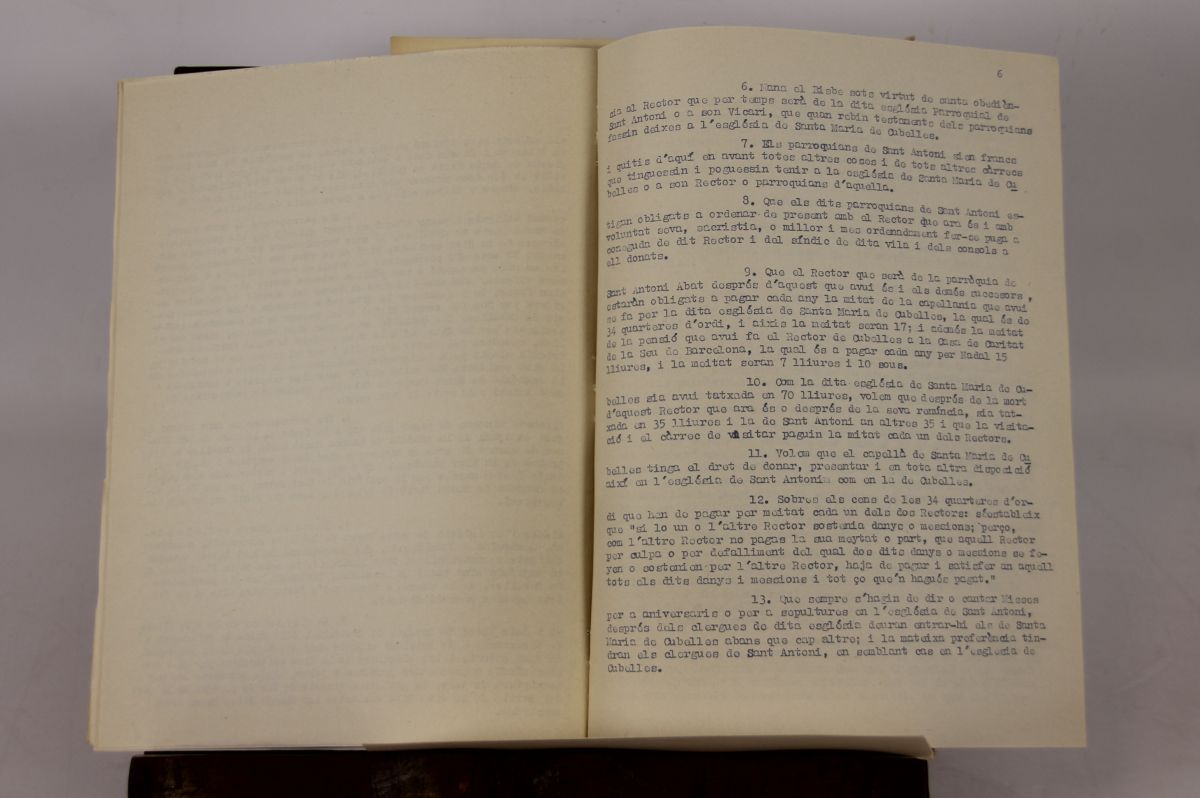 6
6. Mana el Bisbe sots virtut de santa obedièn-
cia al Rector que per temps serà de la dita església Parroquial de
Sant Antoni o a son Vicari, que quan rebin testaments dels parroquians
fassin deixes a l'església de Santa Maria de Cubelles.
7. Els parroquians de Sant Antoni sien francs
i quitis d'aquí en avant totes altres coses i de tots altres càrrecs
que tinguessin i poguessin tenir a la església de Santa Maria de Cu
belles o a son Rector o parroquians d'aquella.
8. Que els dits parroquians de Sant Antoni es-
tigan obligats a ordenar de present amb el Rector que ara és i amb
voluntat seva, sacristia, o millor i mes ordenadament fer-se puga a
coneguda de dit Rector i del síndic de dita vila i dels consols a
ell donats.
9. Que el Rector que serà de la parròquia de
Sant Antoni Abat després d'aquest que avui és i els demés successors,
estaràn obligats a pagar cada any la mitat de la capellania que avui
se fa per la dita església de Santa Maria de Cubelles, la qual és de
34 quarteres d'ordi, i aixis la meitat seran 17; i además la meitat
de la pensió que avui fa el Rector de Cubelles a la Casa de Caritat
de la Seu de Barcelona, la qual és a pagar cada any per Nadal 15
lliures, i la meitat seran 7 lliures i 10 sous.
10. Com la dita església de Santa Maria de Cu-
belles sia avui tatxada en 70 lliures, volem que després de la mort
d'aquest Rector que ara és o després de la seva renúncia, sia tat-
xada en 35 lliures i la de Sant Antoni an altres 35 i que la visita-
ció i el càrrec de visitar paguin la mitat cada un dels Rectors.
11. Volem que el capellà de Santa Maria de Cu
belles tinga el dret de donar, presentar i en tota altra disposició
així en l'església de Sant Antoni com en la de Cubelles.
12. Sobres els cens de les 34 quarteres d'or-
di que han de pagar per meitat cada un dels dos Rectors: s'estableix
que "si lo un o l'altre Rector sostenia danys o messions; perço,
com l'altre Rector no pagas la sua meytat o part, que aquell Rector
per culpa o per defalliment del qual dos dits danys o messions se fe-
yen o sostenien per l'altre Rector, haja de pagar i satisfer an aquell
tots els dits danys i messions i tot ço que'n hagués pagat."
13. Que sempre s'hagin de dir o cantar Misses
per a aniversaris o per a sepultures en l'església de Sant Antoni,
després dels clergues de dita església deuran entrar-hi els de Santa
Maria de Cubelles abans que cap altre; i la mateixa preferència tin-
dran els clergues de Sant Antoni, en semblant cas en l'esglesia de
Cubelles.